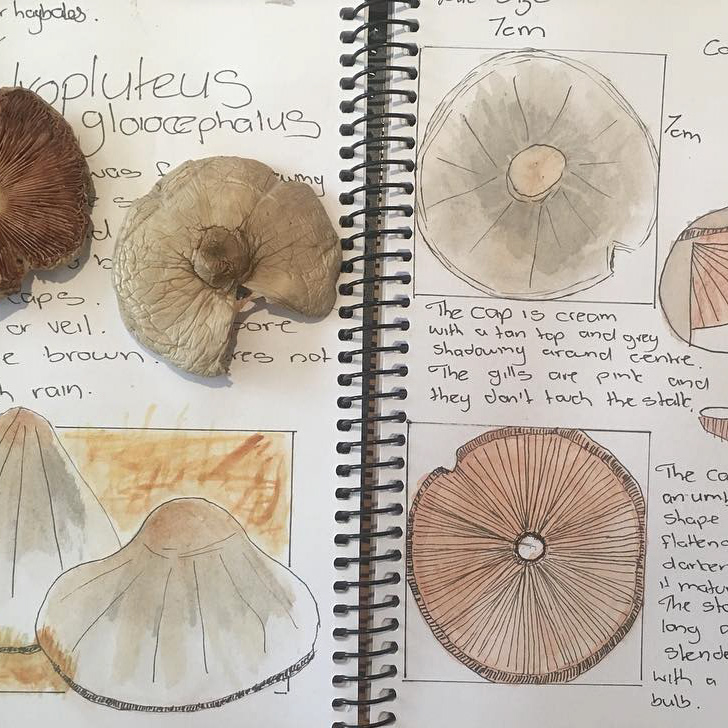 haybales.
ropluteus
gloiocephalus
was
caps.
or veil.
ore
e brown.
res not
rain.
7cm
7cm
The cap is cream
with a tan top and grey
shadowing around centre.
The gills are pink and
they don't touch the stalk.
The ca
an umb
shape
flatene
darker
it matu
The sta
long a
slende
with a
bulb.